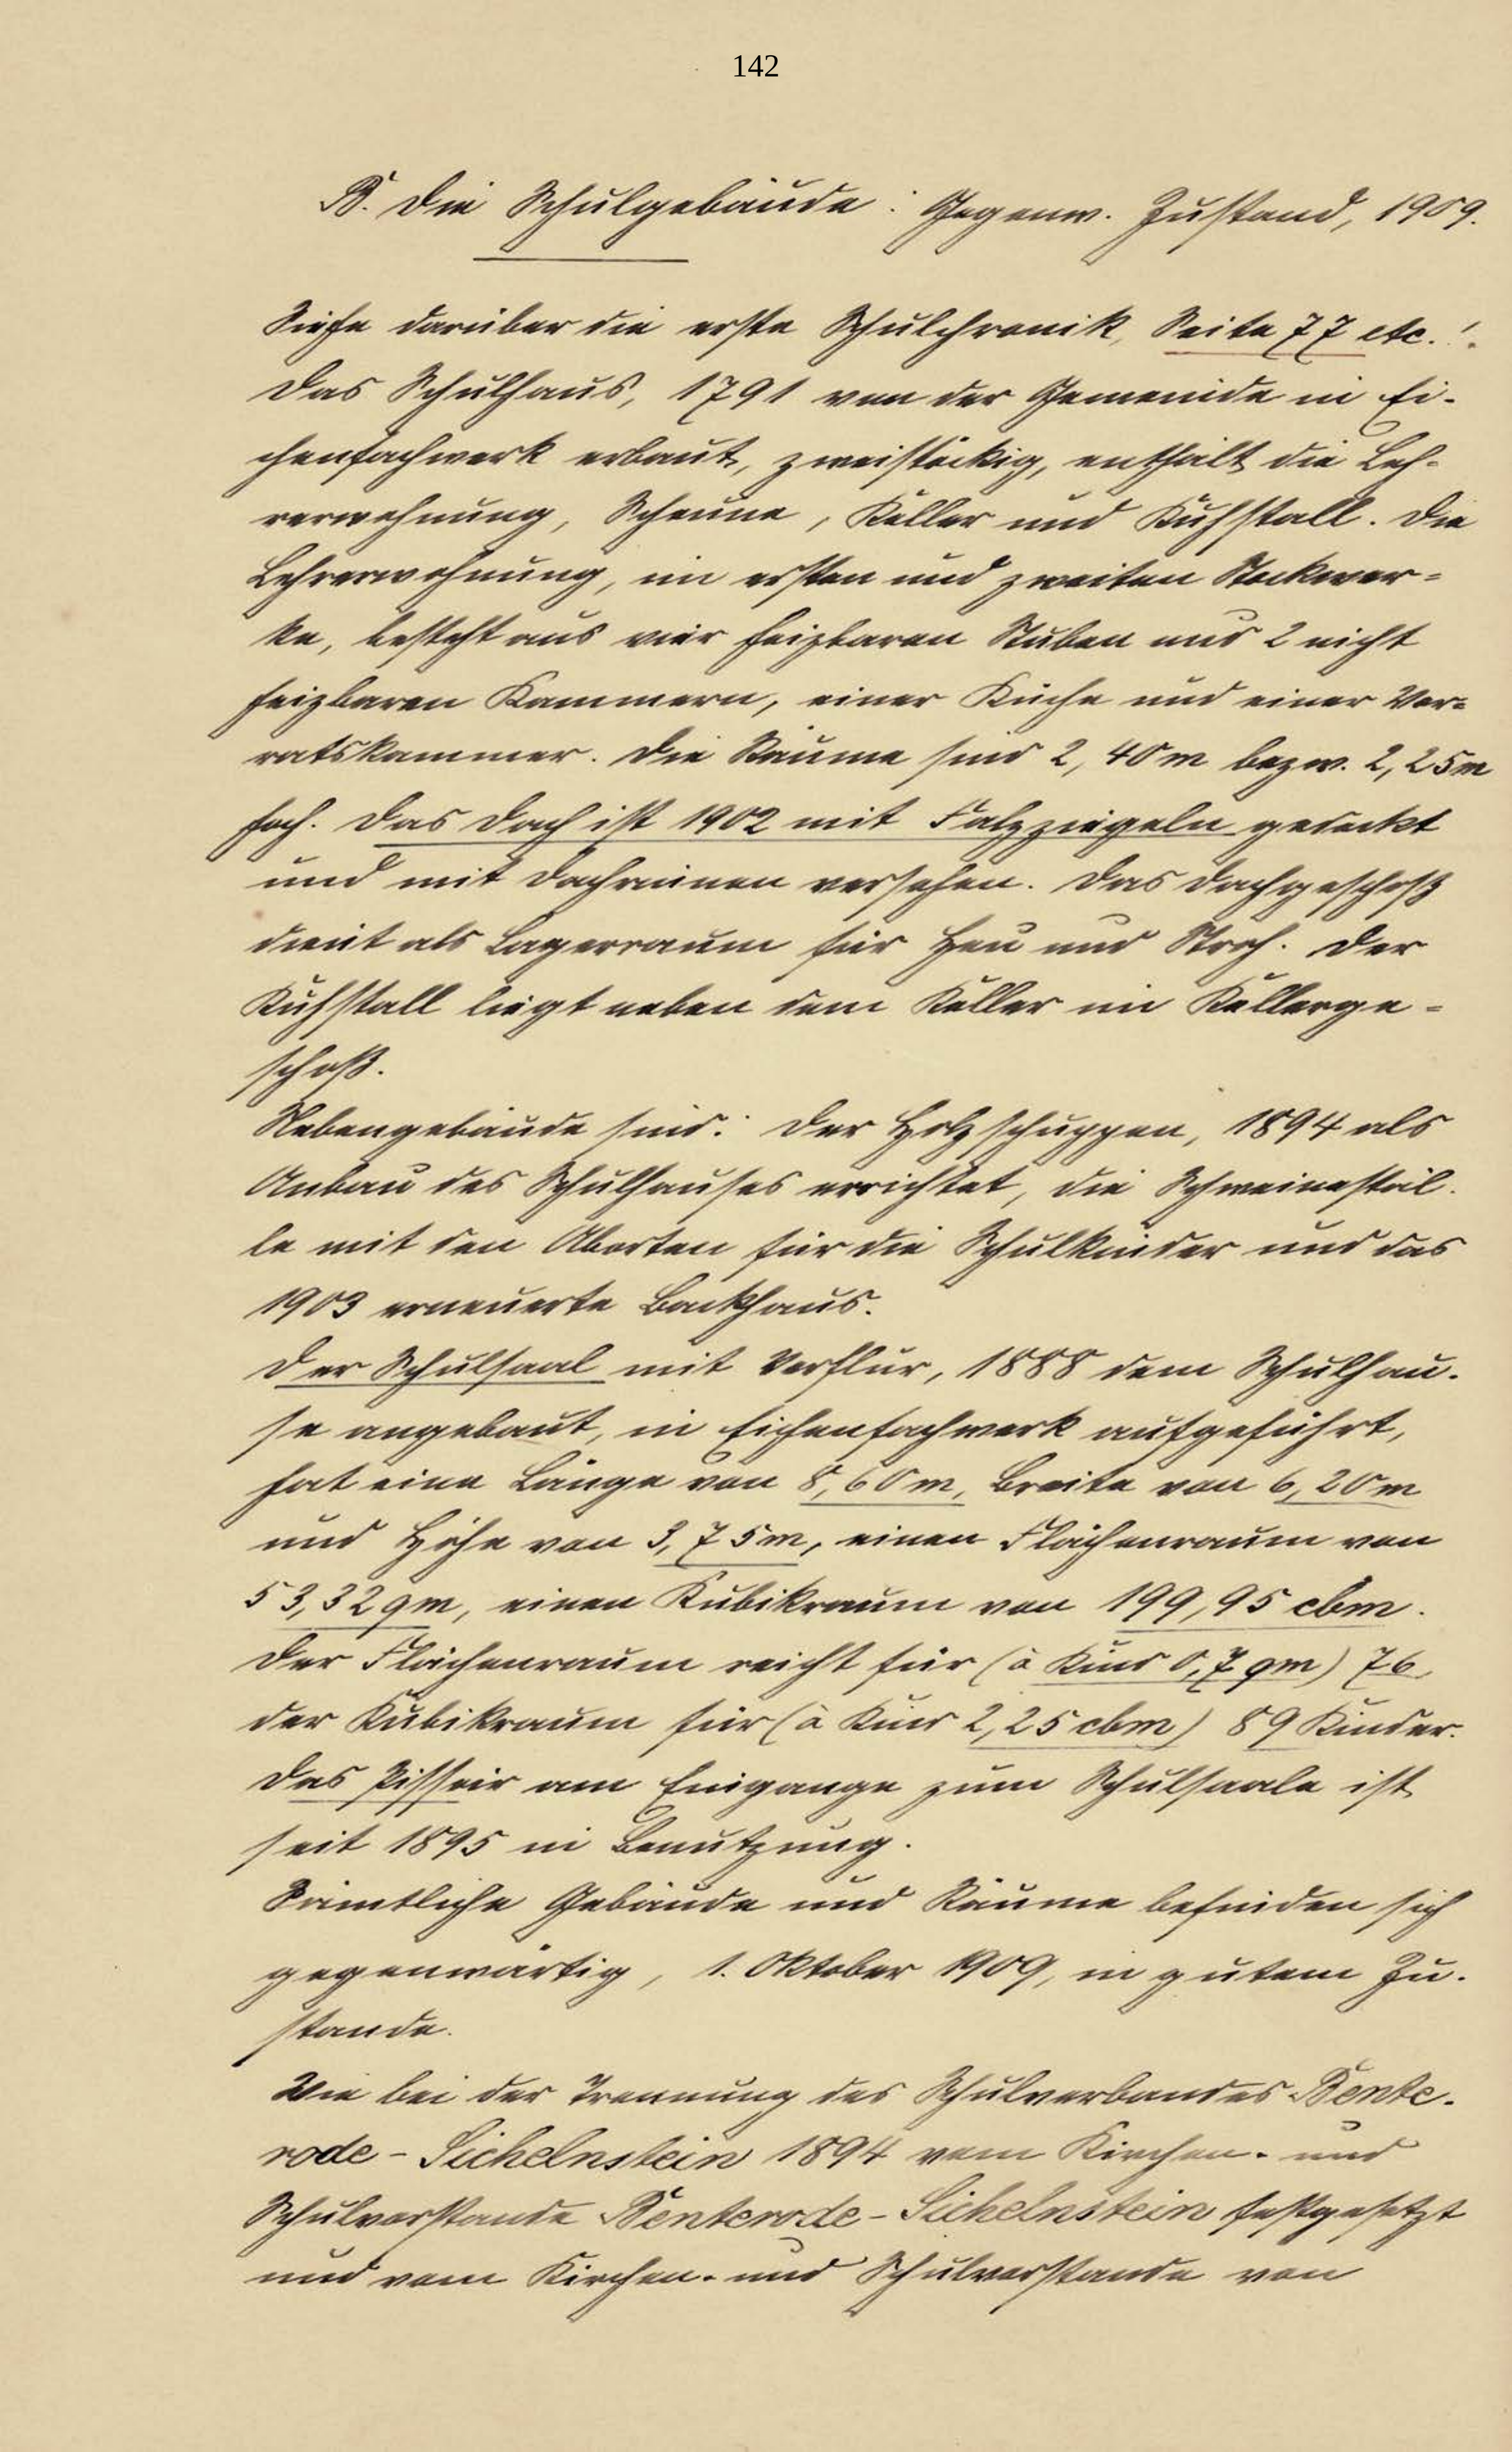 142
B. Die Schulgebäude: Gegenw. Zustand, 1909.
Siehe darüber die erste Schulchronik, Seite 77 etc.!
Das Schulhaus, 1791 von der Gemeinde in Ei-
chenfachwerk erbaut, zweistöckig, enthält die Leh-
rerwohnung, Scheune, Keller und Kuhstall. Die
Lehrerwohnung, im ersten und zweiten Stockwer-
ke, besteht aus vier heizbaren Stuben und 2 nicht
heizbaren Kammern, einer Küche und einer Vor-
ratskammer. Die Räume sind 2,40 m bezw. 2,25 m
hoch. Das Dach ist 1902 mit Falzziegeln gedeckt
und mit Dachrinnen versehen. Das Dachgeschoß
dient als Lagerraum für Heu und Stroh. Der
Kuhstall liegt neben dem Keller im Kellerge-
schoß.
Nebengebäude sind: Der Holzschuppen, 1894 als
Anbau des Schulhauses errichtet, die Schweinestäl-
le mit den Aborten für die Schulkinder und das
1903 erneuerte Backhaus.
Der Schulsaal mit Vorflur, 1888 dem Schulhau-
se angebaut, in Eichenfachwerk aufgeführt,
hat eine Länge von 8,60 m, Breite von 6,20 m
und Höhe von 3,75 m, einen Flächenraum von
53,32 qm, einen Kubikraum von 199,95 cbm.
Der Flächenraum reicht für (à Kind 0,7 qm) 76,
der Kubikraum für (à Kind 2,25 cbm) 89 Kinder.
Das Pissoir am Eingange zum Schulsaale ist
seit 1895 in Benutzung.
Sämtliche Gebäude und Räume befinden sich
gegenwärtig, 1. Oktober 1909, in gutem Zu-
stande.
Wie bei der Trennung des Schulverbandes Bente-
rode-Sichelnstein 1894 vom Kirchen- und
Schulvorstande Benterode-Sichelnstein festgesetzt
und vom Kirchen- und Schulvorstande von